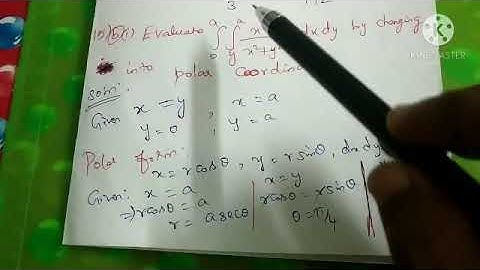 3
15) B) (i) Evaluate ∫₀ᵃ ∫ᵧᵃ x/x²+y² dx dy by changing
into polar coordina
Soln:
Given x = y , x = a
y = 0 , y = a
Polar form:
x = r cosθ , y = r sinθ , dx dy
Given: x = a
⇒ r cosθ = a
r = a secθ
x = y
r cosθ = r sinθ
θ = π/4
KINEMASTER